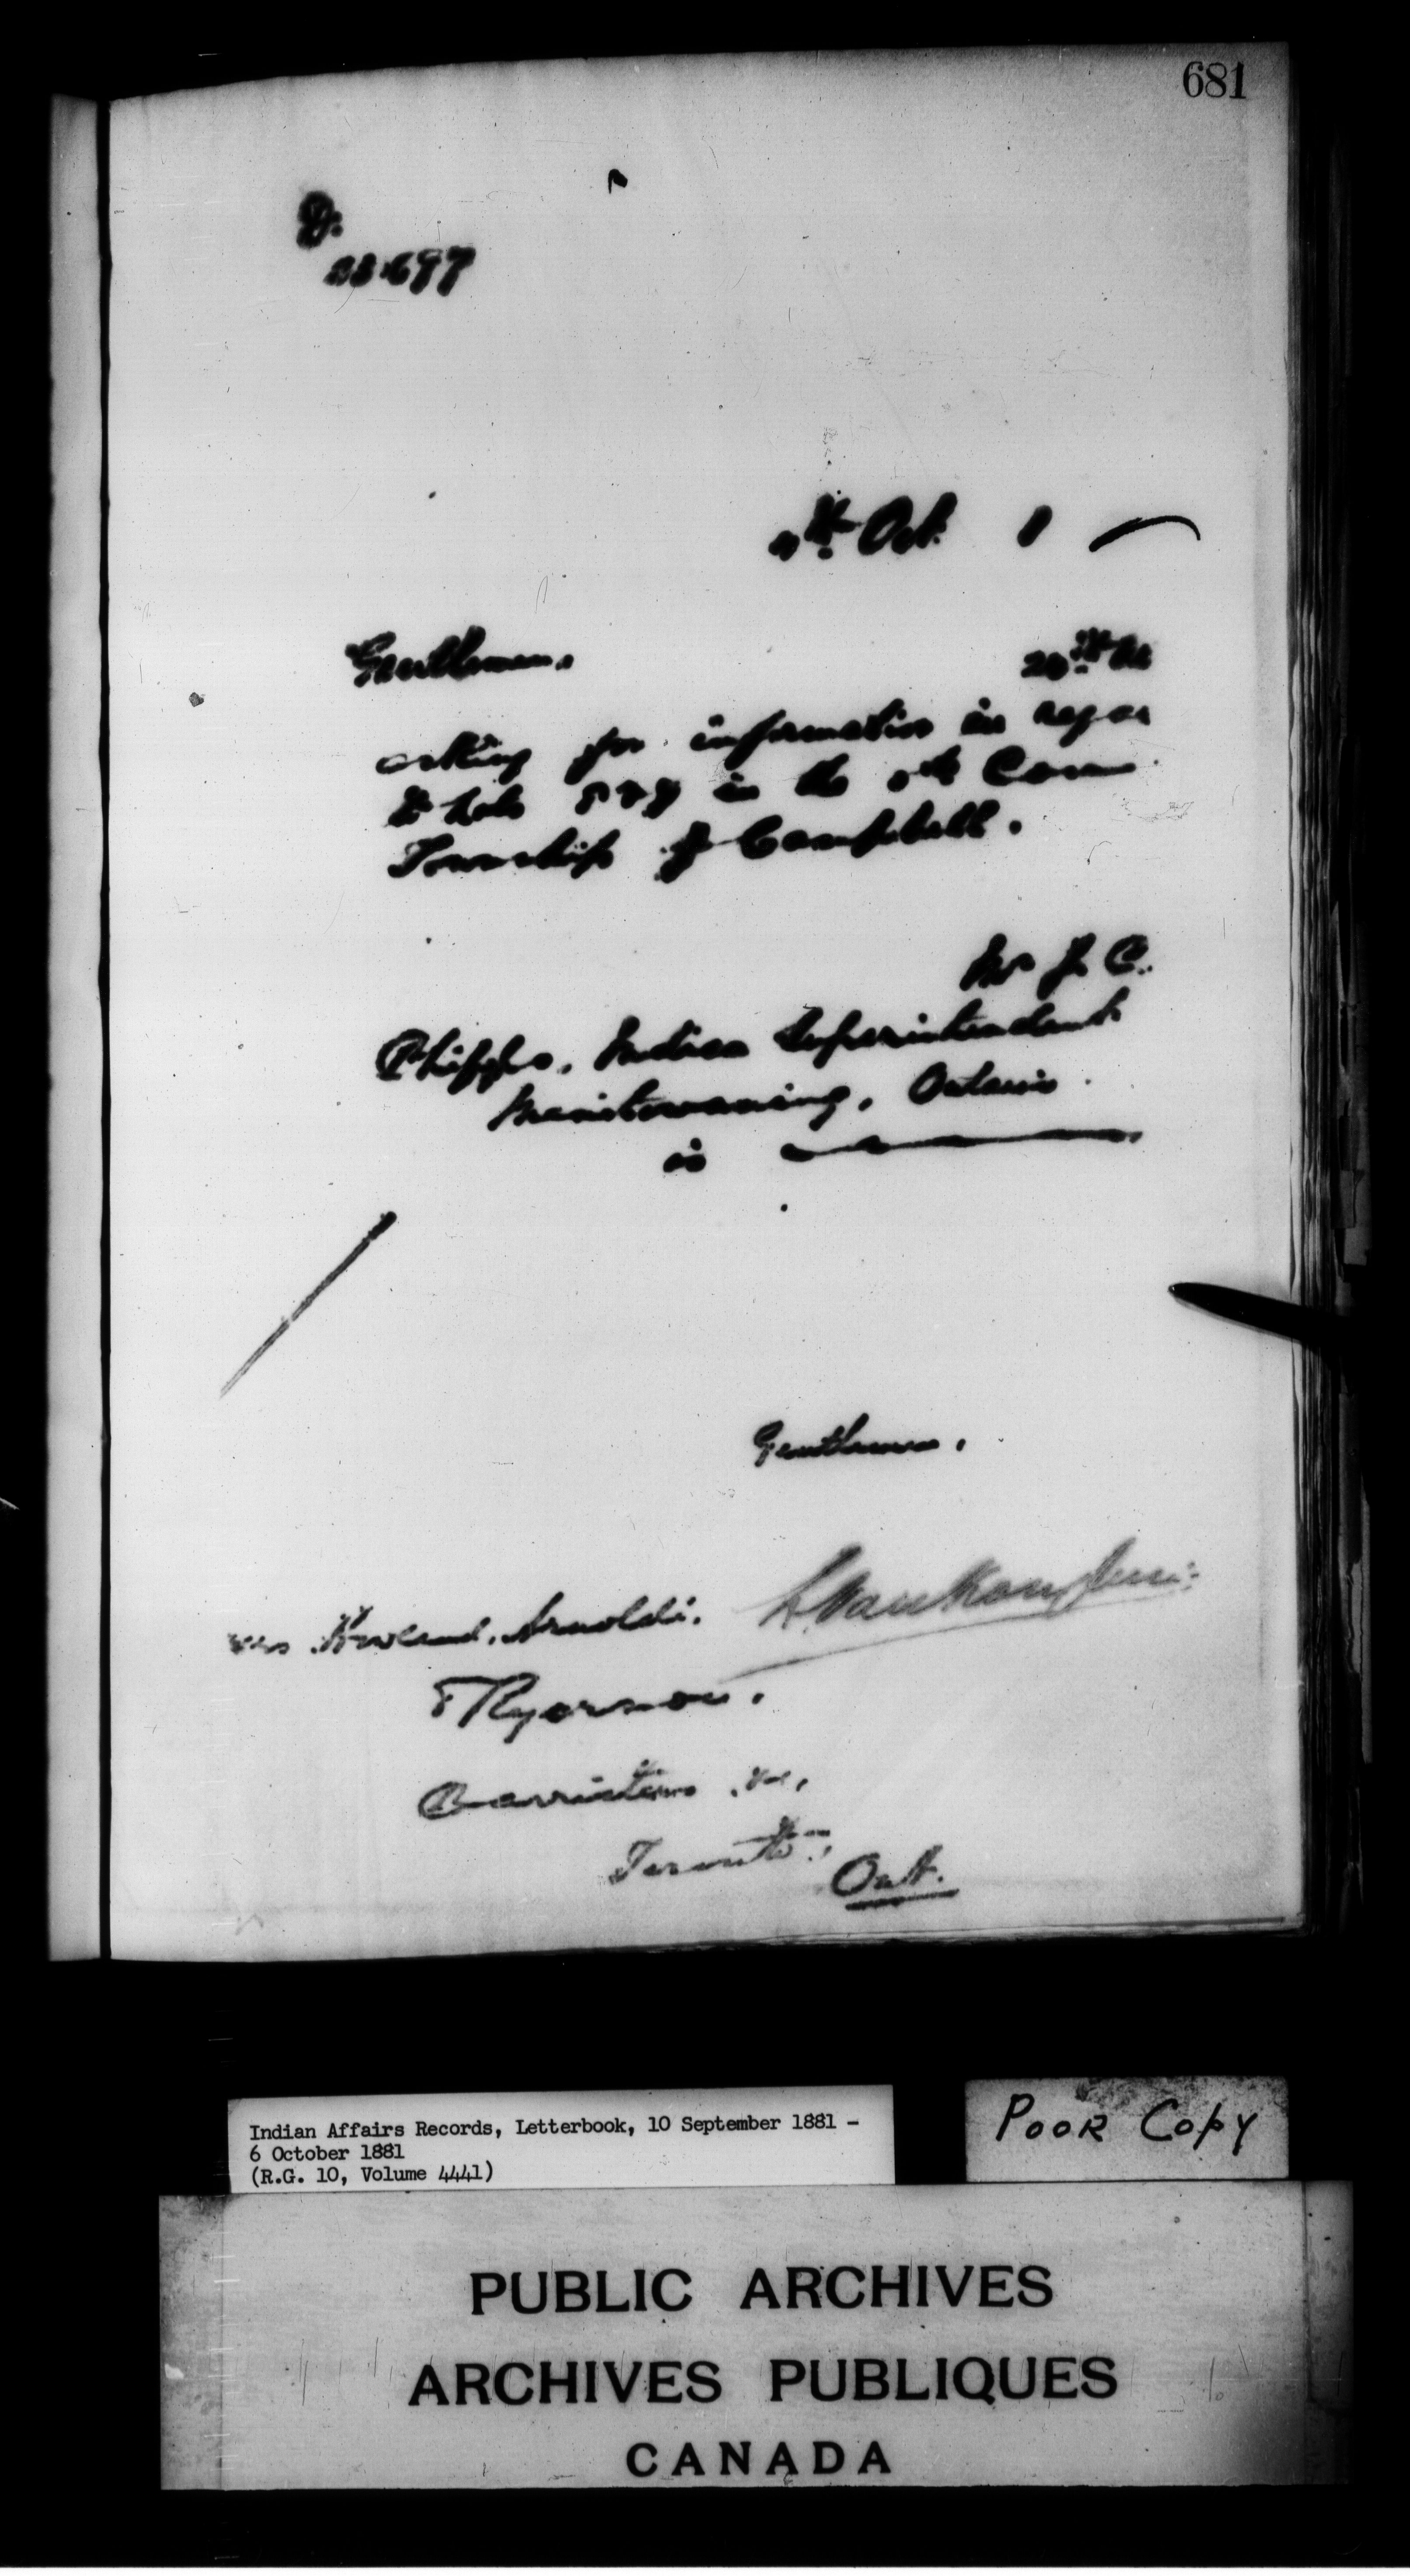 681
23697
4th Oct. 1
Gentlemen,
29th Ult
asking for information in regar
to Lots in the Con
Township of Campbell.
Mr J. C.
Phipps, Indian Superintendent
Manitowaning, Ontario
is
Gentlemen,
Howland, Arnoldi, L. Vankoughnet
& Ryerson,
Barristers &c,
Toronto,
Ont.
Indian Affairs Records, Letterbook, 10 September 1881 -
6 October 1881
(R.G. 10, Volume 4441)
POOR COPY
PUBLIC ARCHIVES
ARCHIVES PUBLIQUES
CANADA